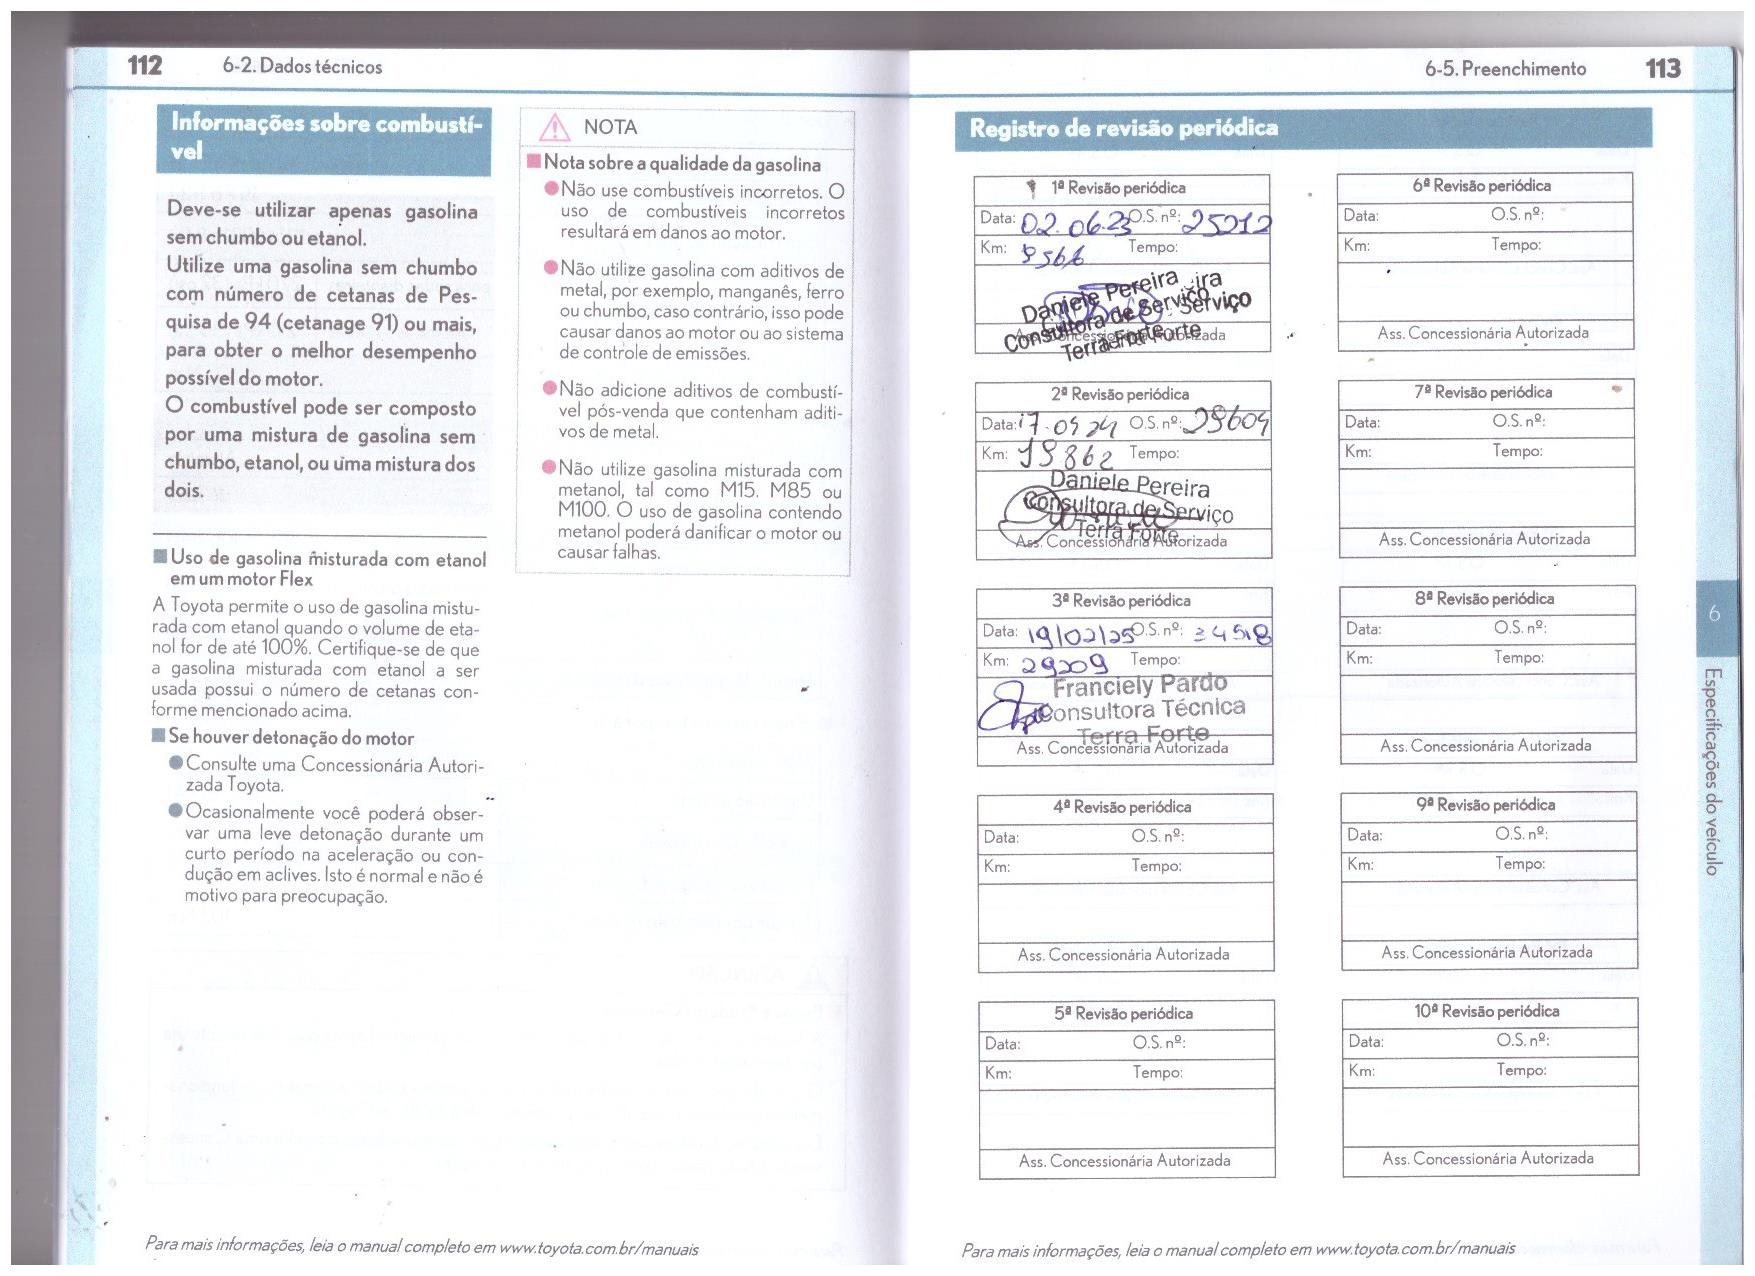 112
6-2. Dados técnicos
Informações sobre combustí-
vel
Deve-se utilizar apenas gasolina
sem chumbo ou etanol.
Utilize uma gasolina sem chumbo
com número de cetanas de Pes-
quisa de 94 (cetanage 91) ou mais,
para obter o melhor desempenho
possível do motor.
O combustível pode ser composto
por uma mistura de gasolina sem
chumbo, etanol, ou uma mistura dos
dois.
Uso de gasolina misturada com etanol
em um motor Flex
A Toyota permite o uso de gasolina mistu-
rada com etanol quando o volume de eta-
nol for de até 100%. Certifique-se de que
a gasolina misturada com etanol a ser
usada possui o número de cetanas con-
forme mencionado acima.
Se houver detonação do motor
Consulte uma Concessionária Autori-
zada Toyota.
Ocasionalmente você poderá obser-
var uma leve detonação durante um
curto período na aceleração ou con-
dução em aclives. Isto é normal e não é
motivo para preocupação.
NOTA
Nota sobre a qualidade da gasolina
Não use combustíveis incorretos. O
uso de combustíveis incorretos
resultará em danos ao motor.
Não utilize gasolina com aditivos de
metal, por exemplo, manganês, ferro
ou chumbo, caso contrário, isso pode
causar danos ao motor ou ao sistema
de controle de emissões.
Não adicione aditivos de combustí-
vel pós-venda que contenham aditi-
vos de metal.
Não utilize gasolina misturada com
metanol, tal como M15. M85 ou
M100. O uso de gasolina contendo
metanol poderá danificar o motor ou
causar falhas.
Para mais informações, leia o manual completo em www.toyota.com.br/manuais
6-5. Preenchimento
113
Registro de revisão periódica
1ª Revisão periódica
Data: 02.06.23 O.S. nº: 25212
Km: 9566 Tempo:
Daniele Pereira
Consultora de Serviço
Terra Forte
Ass. Concessionária Autorizada
2ª Revisão periódica
Data: 17.04 24 O.S. nº: 29604
Km: 19862 Tempo:
Daniele Pereira
Consultora de Serviço
Terra Forte
Ass. Concessionária Autorizada
3ª Revisão periódica
Data: 19/02/25 O.S. nº: 34518
Km: 29209 Tempo:
Franciely Pardo
Consultora Técnica
Terra Forte
Ass. Concessionária Autorizada
4ª Revisão periódica
Data: O.S. nº:
Km: Tempo:
Ass. Concessionária Autorizada
5ª Revisão periódica
Data: O.S. nº:
Km: Tempo:
Ass. Concessionária Autorizada
6ª Revisão periódica
Data: O.S. nº:
Km: Tempo:
Ass. Concessionária Autorizada
7ª Revisão periódica
Data: O.S. nº:
Km: Tempo:
Ass. Concessionária Autorizada
8ª Revisão periódica
Data: O.S. nº:
Km: Tempo:
Ass. Concessionária Autorizada
9ª Revisão periódica
Data: O.S. nº:
Km: Tempo:
Ass. Concessionária Autorizada
10ª Revisão periódica
Data: O.S. nº:
Km: Tempo:
Ass. Concessionária Autorizada
6
Especificações do veículo
Para mais informações, leia o manual completo em www.toyota.com.br/manuais